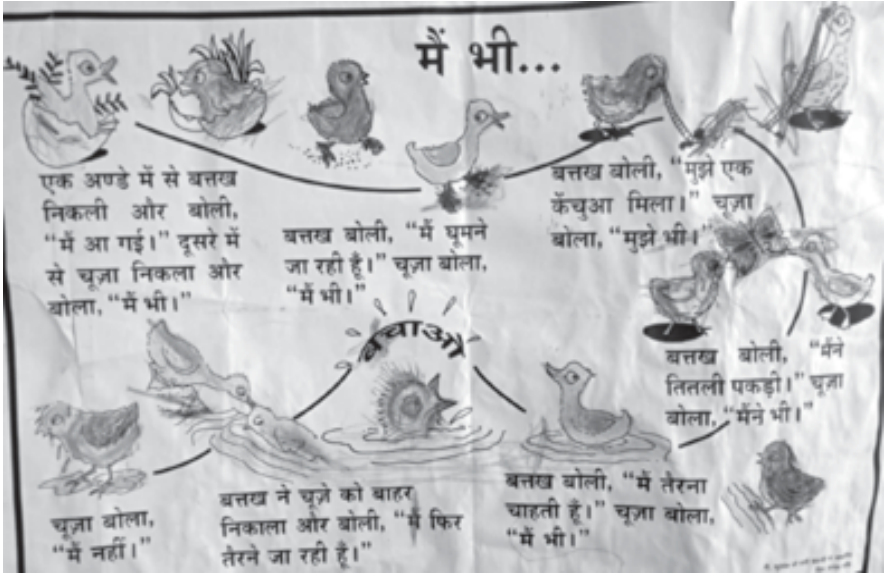 मैं भी...
एक अण्डे में से बत्तख
निकली और बोली,
“मैं आ गई।” दूसरे में
से चूज़ा निकला और
बोला, “मैं भी।”
बत्तख बोली, “मैं घूमने
जा रही हूँ।” चूज़ा बोला,
“मैं भी।”
बत्तख बोली, “मुझे एक
केंचुआ मिला।” चूज़ा
बोला, “मुझे भी।”
बत्तख बोली, “मैंने
तितली पकड़ी।” चूज़ा
बोला, “मैंने भी।”
बत्तख बोली, “मैं तैरना
चाहती हूँ।” चूज़ा बोला,
“मैं भी।”
बचाओ
बत्तख ने चूज़े को बाहर
निकाला और बोली, “मैं फिर
तैरने जा रही हूँ।”
चूज़ा बोला,
“मैं नहीं।”